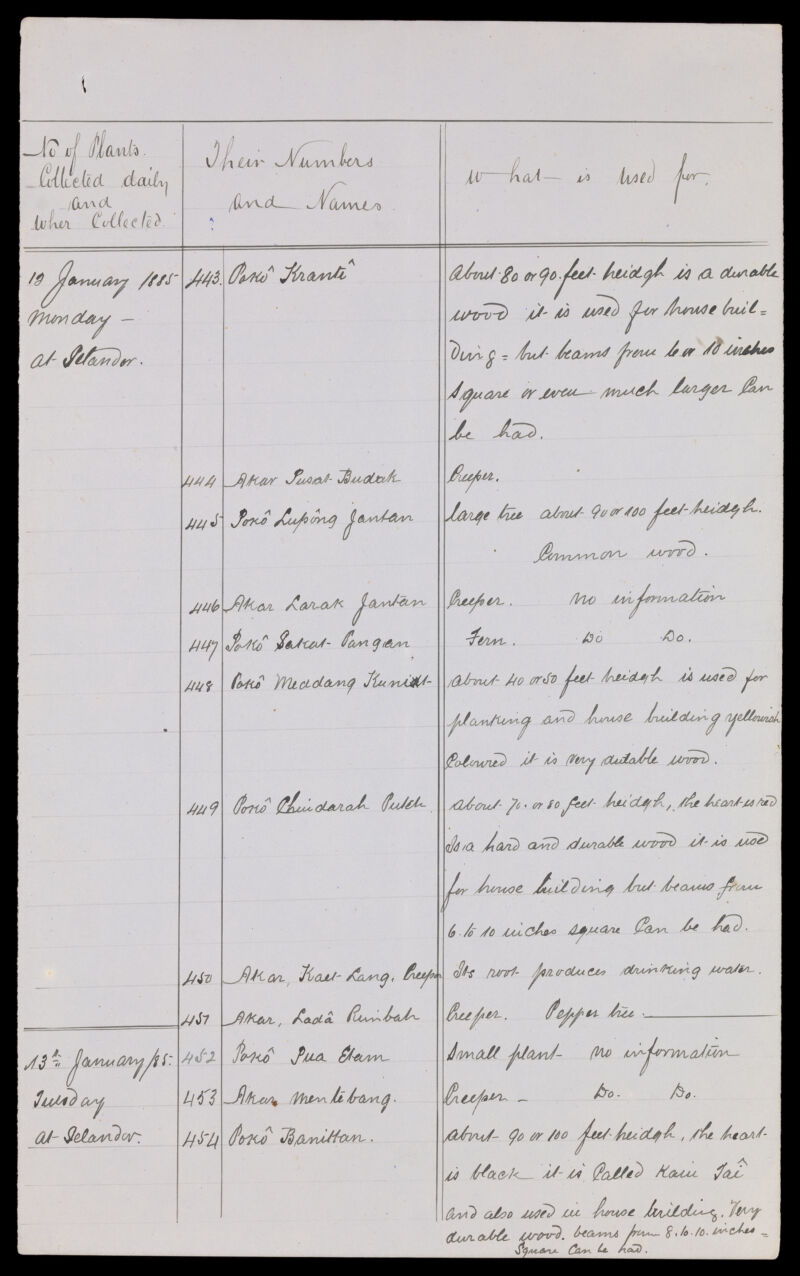 No of Plants.
Collected daily
and
wher Collected.
Their Numbers
and Names
what is used for.
12 January 1885
Monday –
at Selandor.
443. Pokô Krantî
About 80 or 90 feet heidgh is a durable
wood it is used for house buil=
ding = but beams from 6 or 10 inches
square or even much larger Can
be had.
444 Akar Pusat Budak Creeper.
445 Pokô Lupông Jantan large tree about 90 or 100 feet heidgh.
Common wood.
446 Akar Larak Jantan Creeper. no information
447 Pokô Sakat Pangan Fern. Do Do.
448 Pokô Meddang Kunidt about 40 or 50 feet heidgh is used for
planking and house building yellowish
Coloured it is very dutable wood.
449 Pokô Chindarah Puteh about 70. or 80 feet heidgh, the heart is red
Is a hard and durable wood it is used
for house building but beams from
6. to 10 inches square Can be had.
450 Akar, Kaet Lang. Creeper Its root produces drinking water.
451 Akar, Ladâ Rimbah Creeper. Pepper tree.
13th January/85. 452 Pokô Pua Etam Small plant no information
Tuesday 453 Akar mentêbang. Creeper – Do. Do.
at Selandor. 454 Pokô Banittan. about 90 or 100 feet heidgh, the heart
is black it is Called Kaiu Taî
and also used in house building. Very
durable wood. beams from 8. to. 10. inches =
Square Can be had.